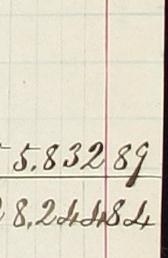 5.83289
8.24484